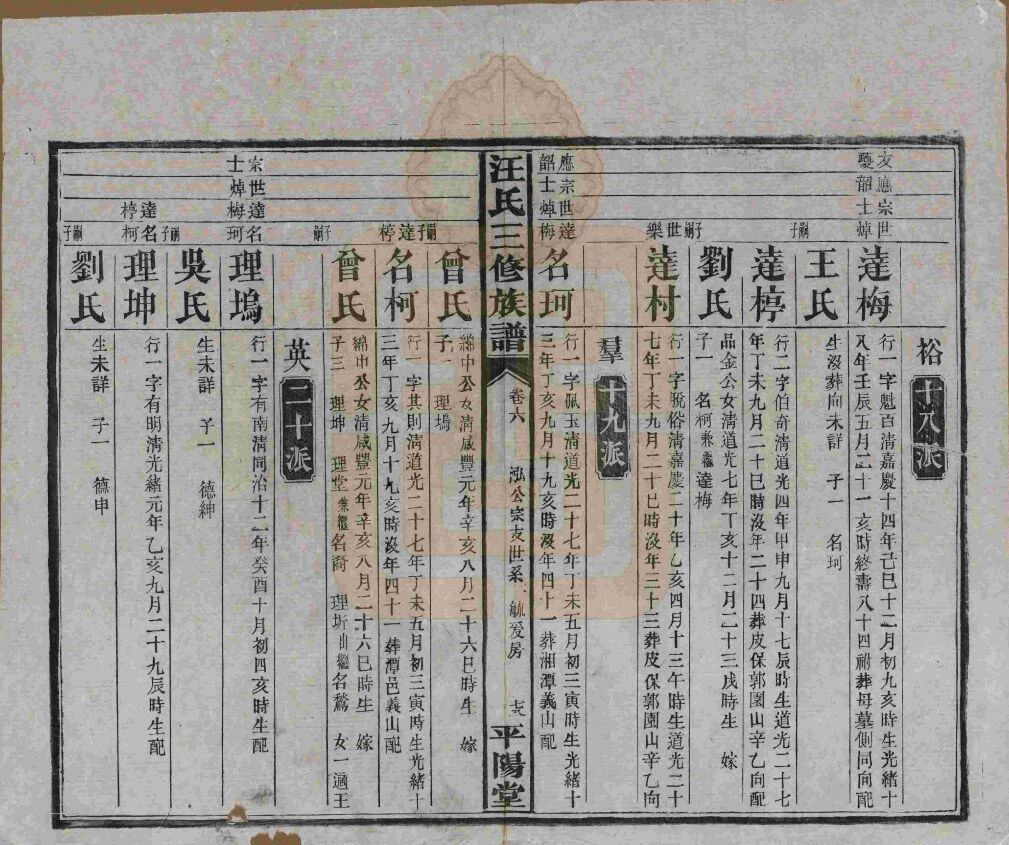 裕 十八派
友應宗世
夔韶士焯
達梅
行一字魁百清嘉慶十四年己巳十二月初九亥時生光緒十
八年壬辰五月二十一亥時終壽八十四祔葬母墓側同向配
王氏
生沒葬向未詳 子一 名珂
嗣子
達楟
行二字伯奇清道光四年甲申九月十七辰時生道光二十七
年丁未九月二十巳時沒年二十四葬皮保郭園山辛乙向配
劉氏
品金公女清道光七年丁亥十二月二十三戌時生 嫁
子一 名柯兼繼達梅
嗣世
子樂
達村
行一字脫俗清嘉慶二十年乙亥四月十三午時生道光二十
七年丁未九月二十巳時沒年三十三葬皮保郭園山辛乙向
羣 十九派
應宗世達
韶士焯梅
名珂
行一字佩玉清道光二十七年丁未五月初三寅時生光緒十
三年丁亥九月十九亥時沒年四十一葬湘潭義山配
汪氏三修族譜 卷六 泓公宗友世系 毓爱房 平陽堂
曾氏
綿中公女清咸豐元年辛亥八月二十六巳時生 嫁
子一 理塢
嗣子達楟
名柯
行一字其則清道光二十七年丁未五月初三寅時生光緒十
三年丁亥九月十九亥時沒年四十一葬潭邑義山配
曾氏
綿中公女清咸豐元年辛亥八月二十六巳時生 嫁
子三 理坤 理堂兼繼名裔 理圻出繼名鶩 女一適王
嗣子
英 二十派
宗世達名
士焯梅珂
理塢
行一字有南清同治十二年癸酉十月初四亥時生配
吳氏
生未詳 子一 德紳
嗣子
達名
楟柯
理坤
行一字有明清光緒元年乙亥九月二十九辰時生配
劉氏
生未詳 子一 德申
嗣子